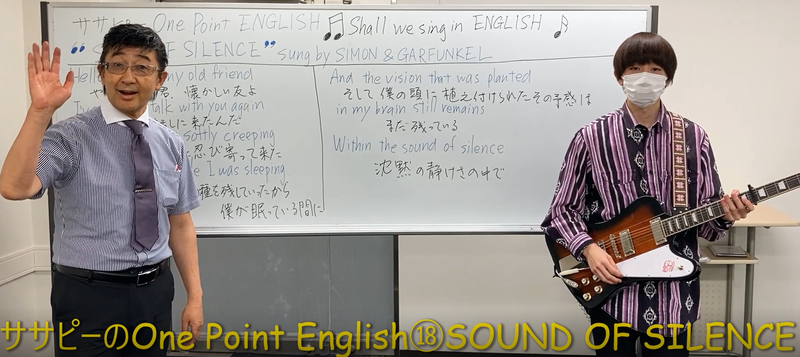 ササピーOne Point ENGLISH Shall we sing in ENGLISH
"S OF SILENCE" sung by SIMON & GARFUNKEL
Hell my old friend
君、懐かしい友よ
talk with you again
しに来たんだ
softly creeping
忍び寄って来た
I was sleeping
種を残していったから
僕が眠っている間に
And the vision that was planted
そして僕の頭に植え付けられたその予感は
in my brain still remains
まだ残っている
Within the sound of silence
沈黙の静けさの中で
ササピーのOne Point English⑱SOUND OF SILENCE